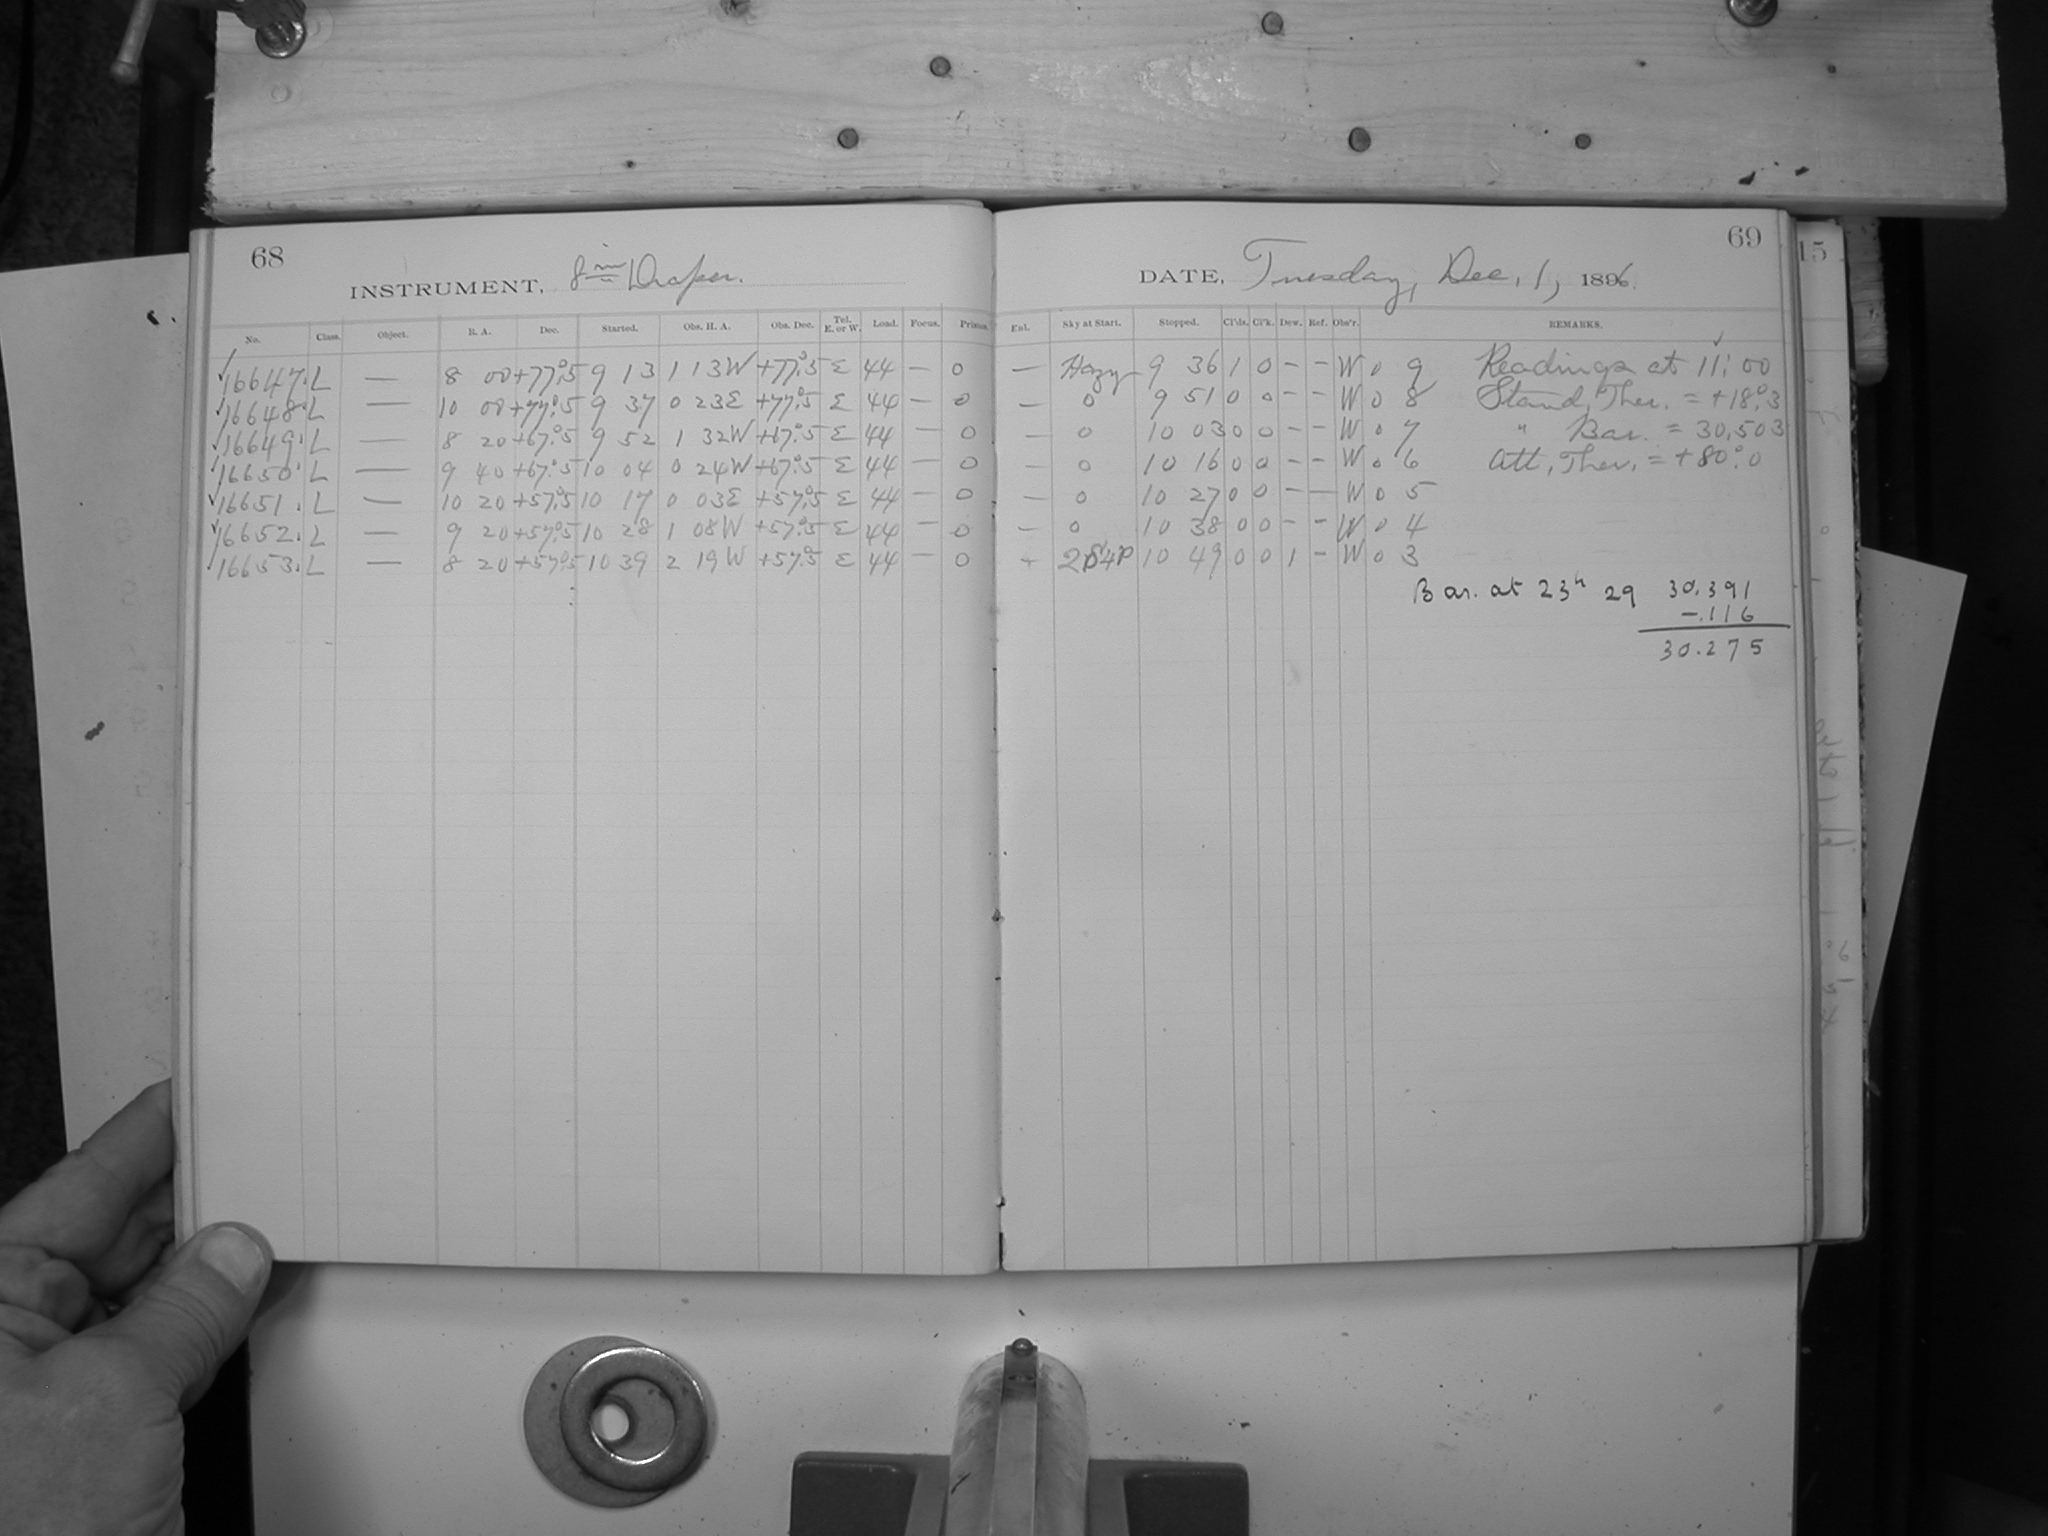 68
INSTRUMENT, 8 in Draper.
No. Class. Object. R. A. Dec. Started. Obs. H. A. Obs. Dec. Tel. E. or W. Load. Focus. Prisms.
16647. L — 8 00 +77°.5 9 13 1 13W +77°.5 E 44 — 0
16648. L — 10 00 +77°.5 9 37 0 23E +77°.5 E 44 — 0
16649. L — 8 20 +67°.5 9 52 1 32W +67°.5 E 44 — 0
16650. L — 9 40 +67°.5 10 04 0 24W +67°.5 E 44 — 0
16651. L — 10 20 +57°.5 10 17 0 03E +57°.5 E 44 — 0
16652. L — 9 20 +57°.5 10 28 1 08W +57°.5 E 44 — 0
16653. L — 8 20 +57°.5 10 39 2 19W +57°.5 E 44 — 0
69
DATE, Tuesday, Dec. 1, 1896.
Ext. Sky at Start. Stopped. Cl'ds. Cl'k. Dew. Ref. Obs'r. REMARKS.
— Hazy 9 36 1 0 — — W 0 9 Readings at 11:00
— 0 9 51 0 0 — — W 0 8 Stand, Ther. = +18°.3
— 0 10 03 0 0 — — W 0 7 " Bar. = 30,503
— 0 10 16 0 0 — — W 0 6 Att, Ther, = +80°.0
— 0 10 27 0 0 — — W 0 5
— 0 10 38 0 0 — — W 0 4
10 49 0 0 1 — W 0 3
Bar. at 23h 29 30.391
—.116
30.275
15